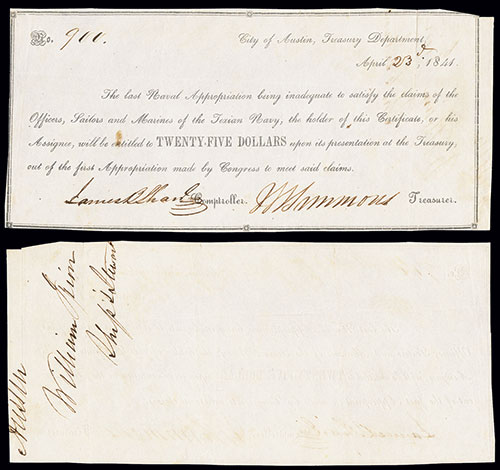 No. 900.
City of Austin, Treasury Department,
April 23d, 1841.
The last Naval Appropriation being inadequate to satisfy the claims of the
Officers, Sailors and Marines of the Texian Navy, the holder of this Certificate, or his
Assignee, will be entitled to TWENTY-FIVE DOLLARS upon its presentation at the Treasury,
out of the first Appropriation made by Congress to meet said claims.
James B Shaw Comptroller. Simmons Treasurer.
Austin
William
Ship